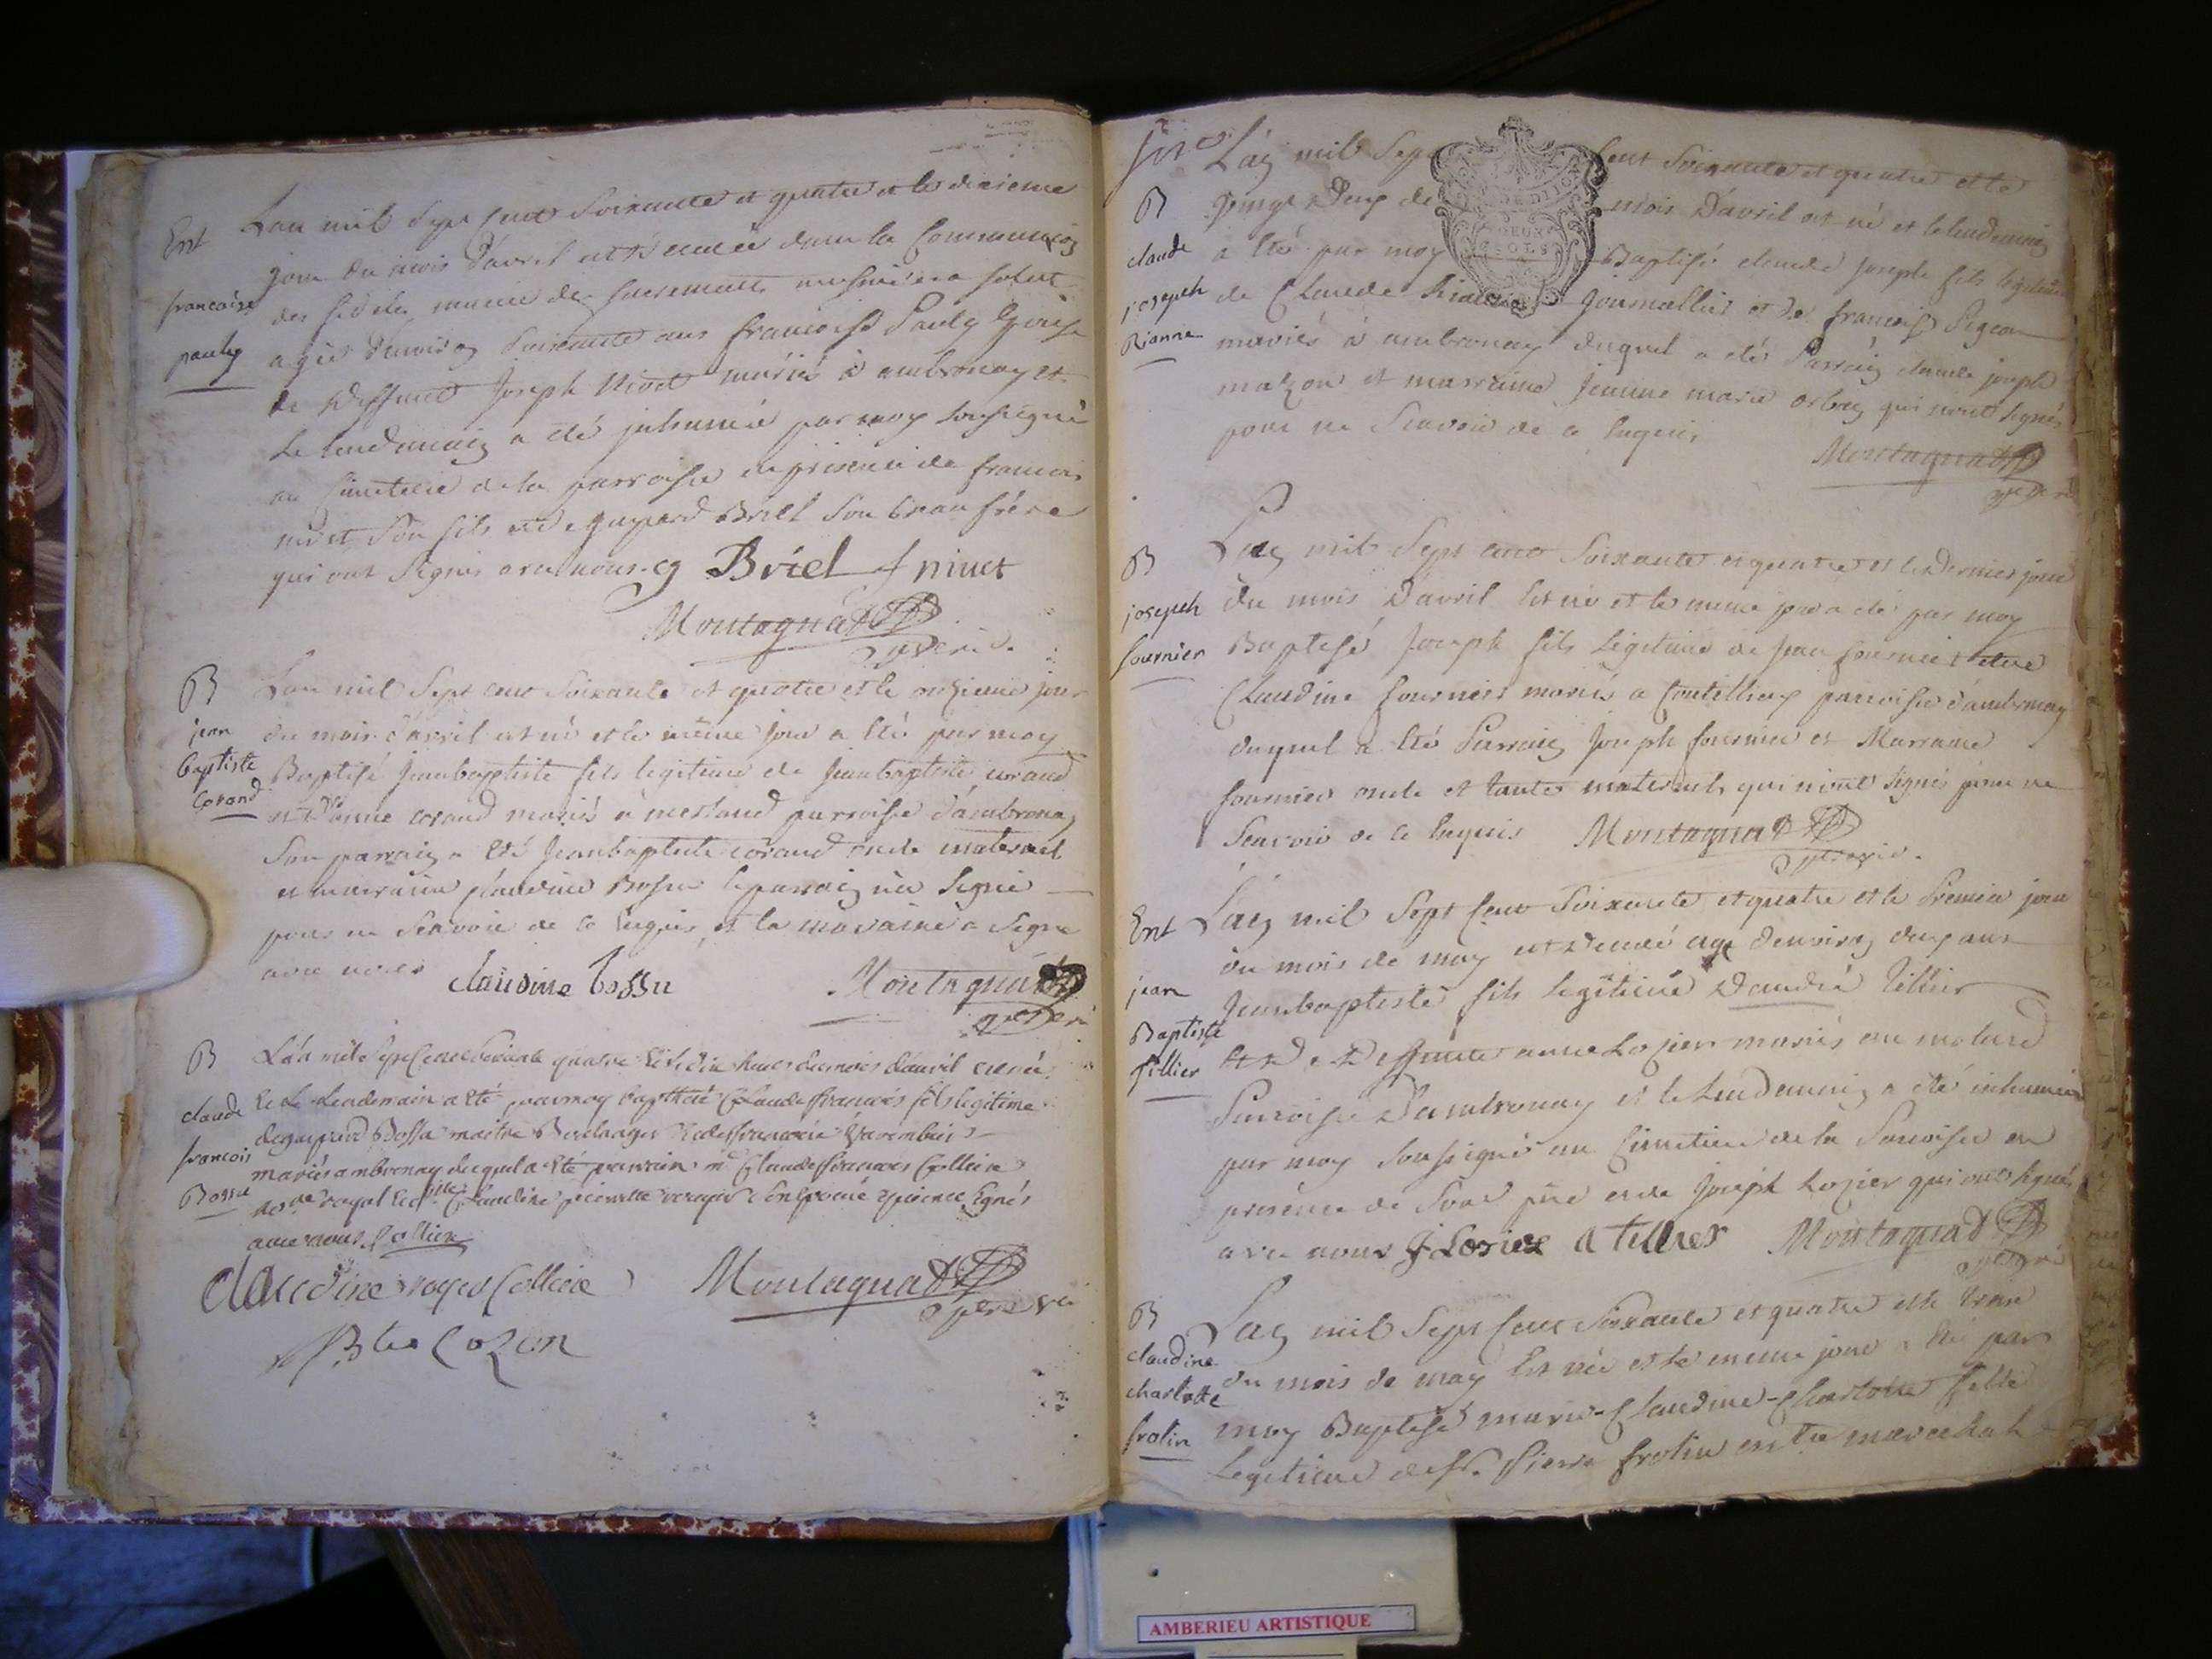 Ent
francoise
pauly
Lan mil Sept Cent Soixante et quatre et le dixieme
jour du mois d'avril est décédée dans la Communion
des fidèles munie des sacrements
agée d'environ Soixante ans francoise Pauly
de deffunct Joseph nivet mariés à ambronay et
Le lendemain a été inhumée par moy soussigné
au Cimetiere de la parroisse en présence de francois
nivet Son fils et de gaspard Briel Son beau frère
qui ont Signés avec nous. g Briel f nivet
Montagnat
B
jean
baptiste
Corand
Lan mil Sept cent Soixante et quatre et le onzieme jour
du mois d'avril est né et le même jour a été par moy
Baptisé Jeanbaptiste fils legitime de Jeanbaptiste corand
et d'anne corand mariés à merland parroisse d'ambronay
Son parrain a été Jeanbaptiste corand oncle maternel
et marraine claudine Bossu le parrain n'a Signé
pour ne Scavoir de ce Enquis, et la maraine a Signé
avec nous
claudine bossu Montagnat
B
claude
francois
Bossu
L'an mil Sept Cent Soixante quatre et le dix du mois d'avril est né
et Le Lendemain a été par moy baptisé Claude francois fils legitime
de gaspard Bossu maitre Boulanger et de francoise
mariés a ambronay duquel a été parrain mr Claude francois Colliex
royal et Claudine pierrette royer Son epouse Signés
avec nous Colliex
Claudine royer Colliex Montagnat
Cozon
B
claude
joseph
Rianne
Lan mil Sept Cent Soixante et quatre et le
vingt Deux de mois d'avril est né et le lendemain
a été par moy Baptisé claude Joseph fils légitime
de Claude Journallier et de francoise Pigeon
mariés à ambronay duquel a été Parrain claude joseph
et marraine Jeanne marie qui n'ont Signés
pour ne Scavoir de ce Enquis
Montagnat
B
joseph
fournier
Lan mil Sept cent Soixante et quatre et le Dernier jour
du mois d'avril Est né et le meme jour a été par moy
Baptisé Joseph fils Légitime de Jean fournier et de
Claudine fournier mariés a Coutelieu parroisse d'ambronay
duquel a été Parrain Joseph fournier et Marraine
fournier oncle et tante maternels qui n'ont signés pour ne
Scavoir de ce Enquis Montagnat
Ent
jean
Baptiste
tillier
Lan mil Sept Cent Soixante et quatre et le Premier jour
du mois de may est décédé age d'environ deux ans
Jeanbaptiste fils Legitime D'andré Tillier
Et De Deffunte anne Lozier mariés au molard
Parroisse D'ambronay et le Lendemain a été inhumé
par moy Soussigné au Cimetiere de la Parroisse en
présence de Son père et de Joseph Lozier qui ont Signés
avec nous J Losier a tillier Montagnat
B
claudine
charlotte
frotin
Lan mil Sept Cent Soixante et quatre et le trois
du mois de may Est née et le meme jour a été par
moy Baptisé marie-Claudine-Charlotte fille
Legitime de Sr. Pierre frotin maitre marechal
AMBERIEU ARTISTIQUE